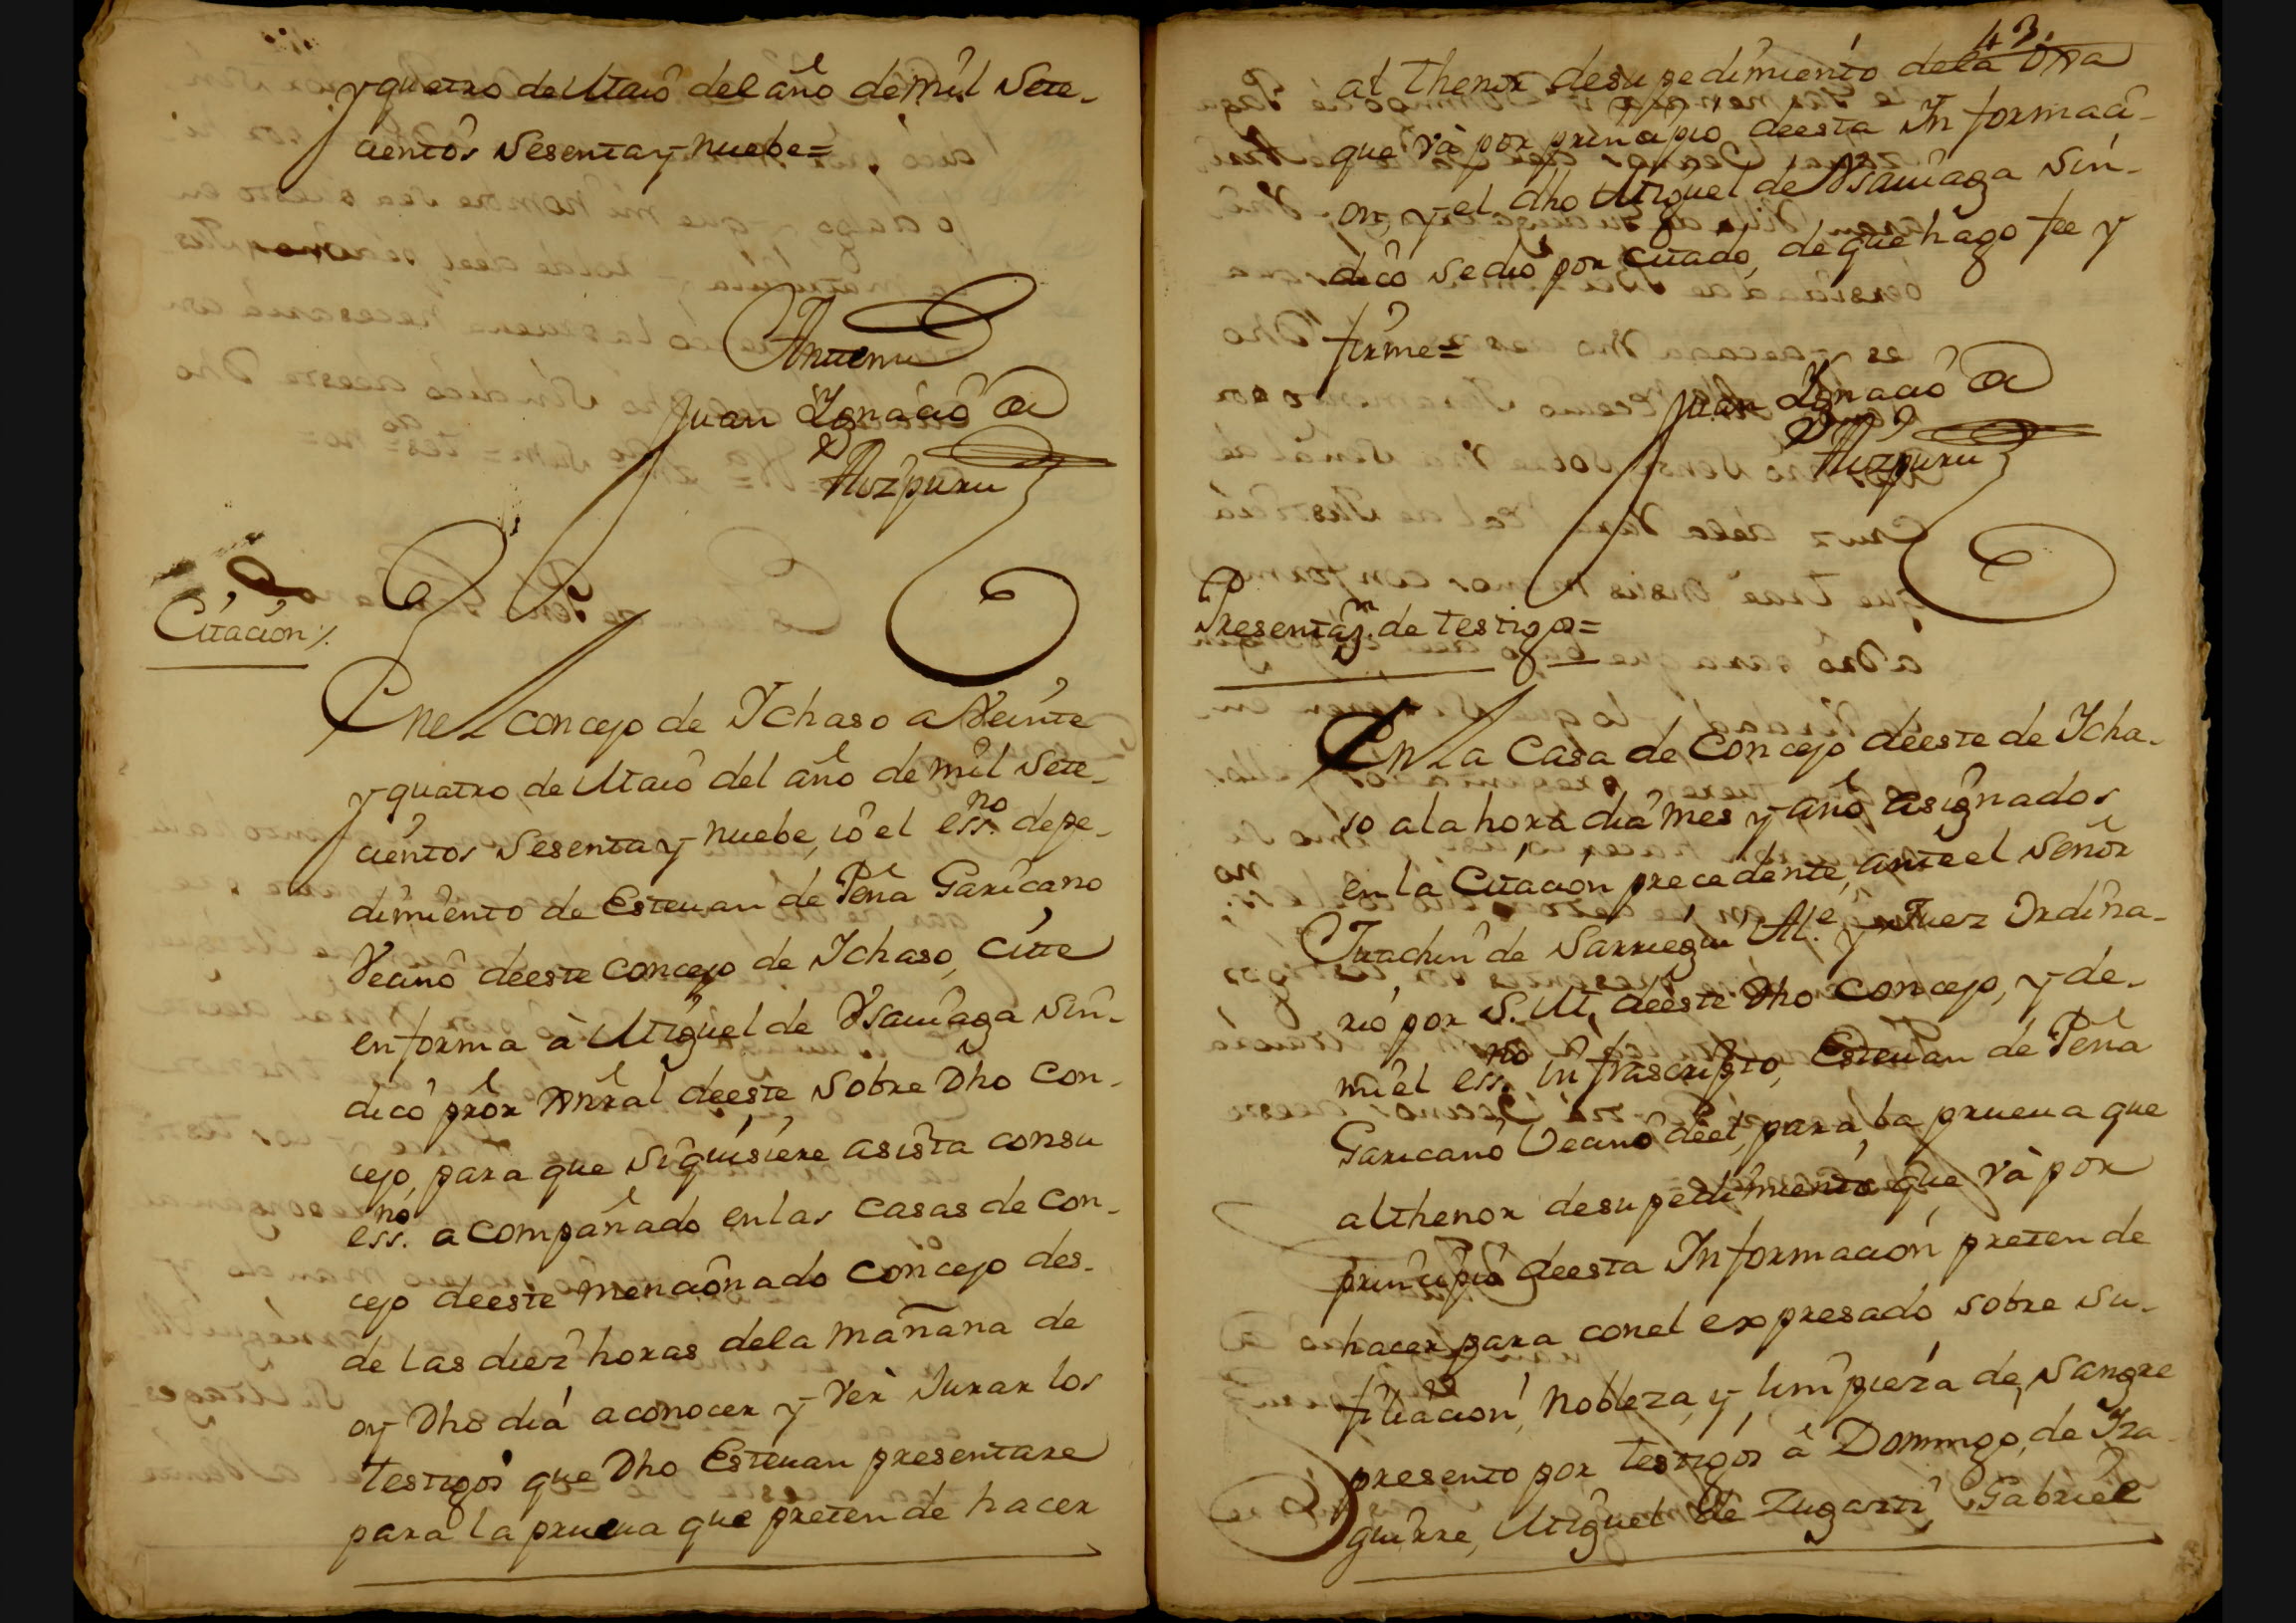 y quatro de Maio del año de mil Sete-
cientos Sesenta y nuebe=
Antemi
Juan Ignacio de
Aizpuru
Citación/.
Enel concejo de Ichaso a Veinte
y quatro de Maio del año de mil Sete-
cientos Sesenta y nuebe, io el essno. de pe-
dimiento de Esteuan de Peña Garicano
Vecino deeste concejo de Ichaso, Cite
en forma à Miguel de Ysauiaga Sin-
dico prōr nral deeste sobre Dho Con-
cejo, para que siquisiere asista consu
essno. acompañado enlas Casas de Con-
cejo deeste mencionado concejo des-
de las diez horas dela mañana de
oy Dho dia aconocer y Ver Jurar los
testigos que Dho Esteuan presentare
para la prueua que pretende hacer
43.
al thenor desu pedimiento dela
que và por principio deesta Informaci-
on, y el dho Miguel de Ysauiaga Sin-
dico sedio por citado, de que hago fee y
firme=
Juan Ignacio de
Aizpuru
Presentazn. de testigos=
En La Casa de Concejo deeste de Icha-
so ala hora dia mes y año asignados
en la Citacion precedente, anteel Señor
Juachin de Sarriegui Ale. y Juez Ordina-
rio por S. M. deeste Dho Concejo, y de-
mi el essno. infrascripto, Esteuan de Peña
Garicano Vecino deel, para la prueua que
althenor desu pedimiento que và por
principio deesta Informacion pretende
hacer para conel expresado sobre su-
filiacion, Nobleza, y limpieza de Sangre
presento por testigos à Domingo de Iza-
guirre, Miguel de Zugasti, Gabriel